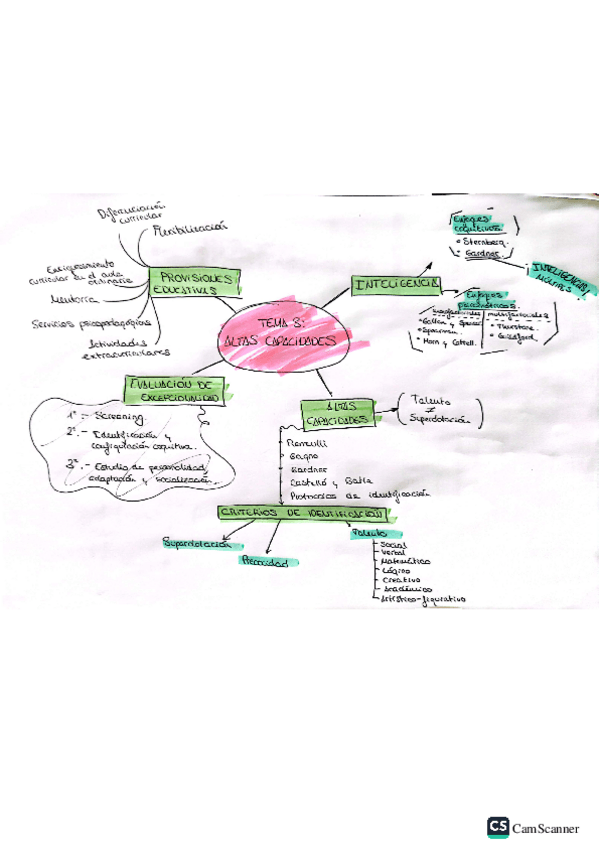 Diferenciación
curricular
Flexibilización
Enriquecimiento
curricular en el aula
ordinaria
Mentoría
Servicios psicopedagógicos
Actividades
extracurriculares
PROVISIONES
EDUCATIVAS
TEMA 8:
ALTAS CAPACIDADES
INTELIGENCIA
Enfoques
cognitivos.
• Sternberg.
Gardner.
INTELIGENCIAS
MÚLTIPLES.
Enfoques
psicométricos.
monofactoriales
• Galton y Spencer
• Spearman.
• Horn y Cattell.
multifactoriales
• Thurstone.
• Guildford.
EVALUACIÓN DE
EXCEPCIONALIDAD
1º.- Screening.
2º.- Identificación y
configuración cognitiva.
3º.- Estudio de personalidad,
adaptación y socialización.
ALTAS
CAPACIDADES
Talento
≠
Superdotación.
Renzulli
Gagne
Gardner
Castelló y Batlle
Protocolos de identificación
CRITERIOS DE IDENTIFICACIÓN
Superdotación
Precocidad
Talento
Social
Verbal
Matemático
Lógico
Creativo
Académico
Artístico-figurativo
CS CamScanner